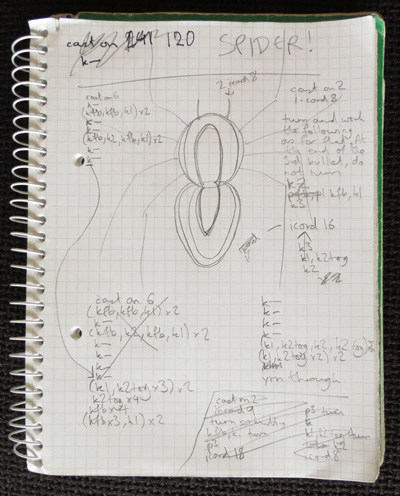 cast on 120
k—
SPIDER!
2 icord 8
cast on 6
k—
(kfb, kfb, k1) x2
k—
(kfb, k2, kfb, k1) x2
k—
k—
k—
cast on 2
1-cord 8
turn and work
the following
as for flat. At
the end of the
3rd bullet, do
not turn
k2
p1 kfb, k1
k3
icord 16
k3
k1, k2tog
k2
cast on 6
(kfb, kfb, k1) x2
k—
(kfb, k2, kfb, k1) x2
k—
k—
k—
k—
(k1, k2tog x3) x2
k2tog x4
kfb x4
(kfb x3, k1) x2
k—
k—
k—
k—
(k1, k2tog, k2, k2tog)
(k1, k2tog x2) x2
k—
yrn through
cast on 2
icord 9
turn
turn
p3
icord 18
p3 turn
k
k1, k2tog turn
icord 8